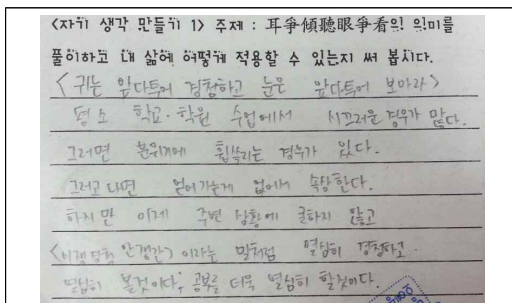 <자기 생각 만들기 1> 주제 : 耳爭傾聽眼爭看의 의미를
풀이하고 내 삶에 어떻게 적용할 수 있는지 써 봅시다.
<귀는 앞다투어 경청하고 눈은 앞다투어 보아라>
평소 학교·학원 수업에서 시끄러운 경우가 많다.
그러면 분위기에 휩쓸리는 경우가 있다.
그러고 나면 얻어가는게 없어서 속상한다.
하지만 이제 주변 상황에 굴하지 않고
<이쟁경청 안쟁간> 이라는 말처럼 열심히 경청하고.
열심히 볼것이다; 공부를 더욱 열심히 할것이다.